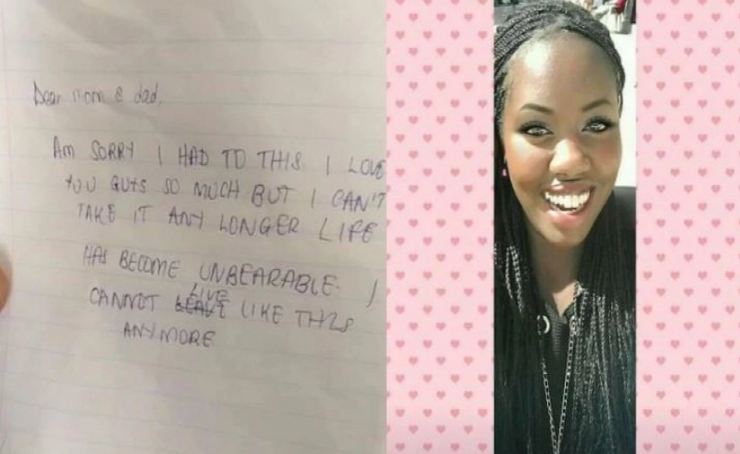 Dear mom & dad,
Am SORRY I HAD TO THIS I LOVE
YOU GUYS SO MUCH BUT I CAN'T
TAKE IT ANY LONGER LIFE
HAS BECOME UNBEARABLE. I
CANNOT LIVE LIKE THIS
ANYMORE